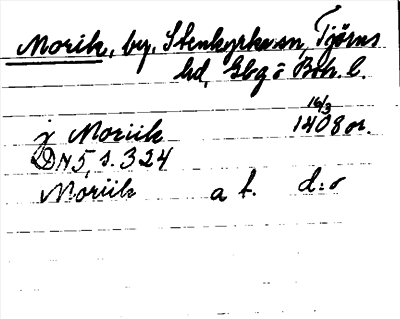 Morik, by, Stenkyrka sn, Tjörns
hd, Gbg o Boh. l.
16/3
j Moriik 1408 or.
DN 5, s. 324
Moriik a f. d:o